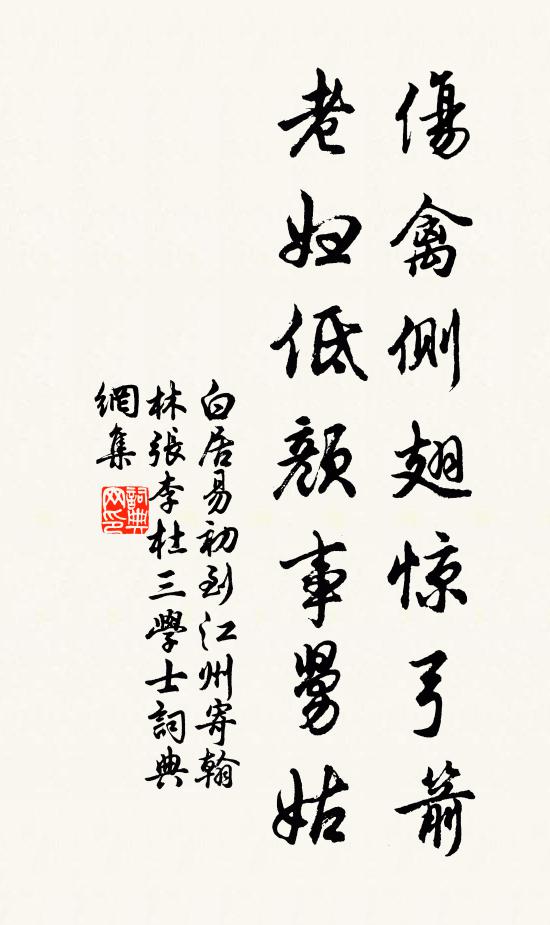 傷禽側翅惊弓箭
老妇低颜事舅姑
白居易初到江州寄翰
林張李杜三學士詞典
網集
詞典
网印